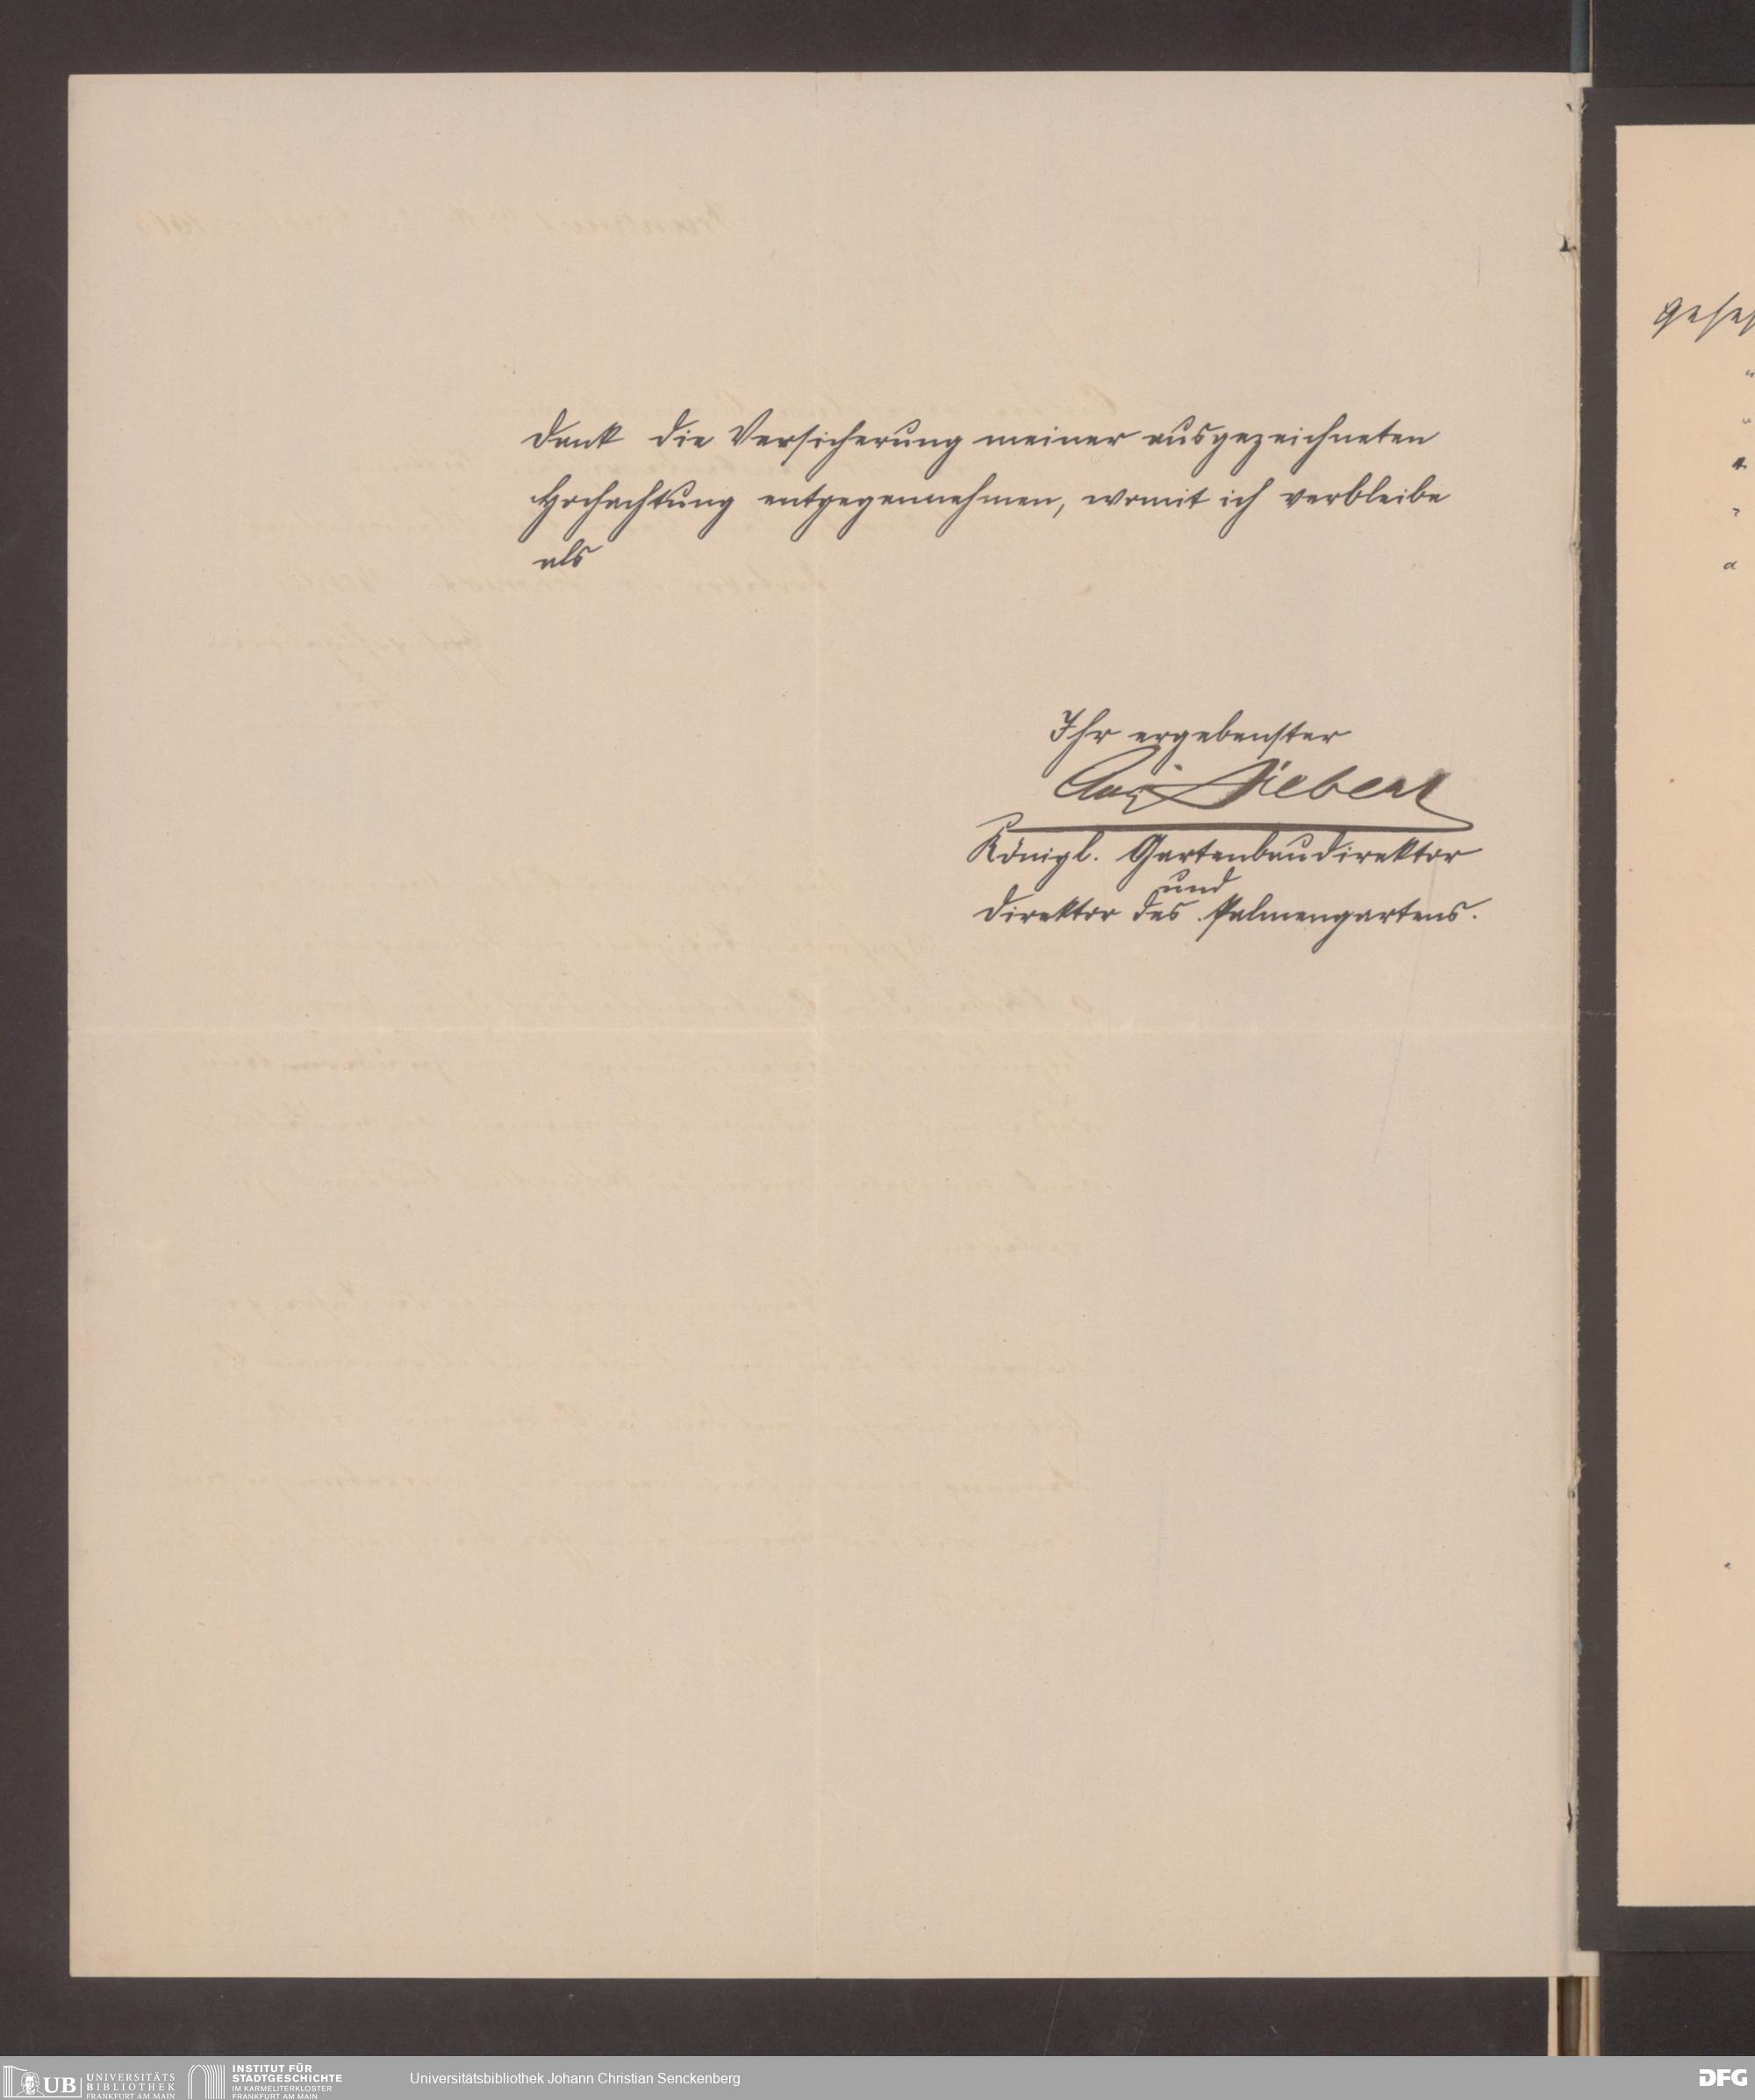 Dank die Versicherung meiner ausgezeichneten
Hochachtung entgegennehmen, womit ich verbleibe
als
Ihr ergebenster
Aug. Siebert
Königl. Gartenbaudirektor
und
Direktor des Palmengartens.
UB
UNIVERSITÄTS
BIBLIOTHEK
FRANKFURT AM MAIN
INSTITUT FÜR
STADTGESCHICHTE
IM KARMELITERKLOSTER
FRANKFURT AM MAIN
Universitätsbibliothek Johann Christian Senckenberg
DFG